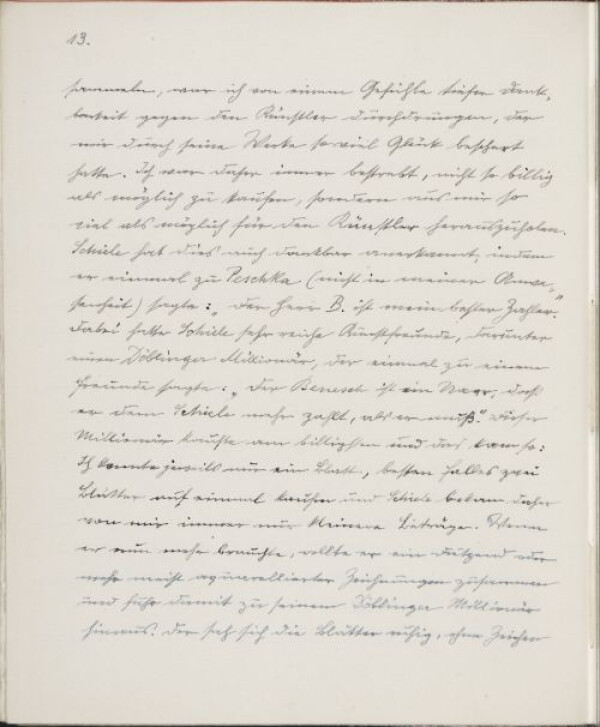 13.
sammeln, war ich von einem Gefühle tiefer Dank-
barkeit gegen den Künstler durchdrungen, der
mir durch seine Werke so viel Glück beschert
hatte. Ich war daher immer bestrebt, nicht so billig
als möglich zu kaufen, sondern aus mir so
viel als möglich für den Künstler herauszuholen.
Schiele hat dies auch dankbar anerkannt, indem
er einmal zu Peschka (nicht in meiner Anwe-
senheit) sagte: „Der Herr B. ist mein bester Zahler.“
Dabei hatte Schiele sehr reiche Kunstfreunde, darunter
einen Döblinger Millionär, der einmal zu einem
Freunde sagte: „Der Benesch ist ein Narr, daß
er dem Schiele mehr zahlt, als er muß.“ Dieser
Millionär kaufte am billigsten und das kam so:
Ich konnte jeweils nur ein Blatt, besten Falles zwei
Blätter auf einmal kaufen und Schiele bekam daher
von mir immer nur kleinere Beträge. Wenn
er nun mehr brauchte, rollte er ein Dutzend oder
mehr meist aquarellierter Zeichnungen zusammen
und fuhr damit zu seinem Döblinger Millionär
hinaus. Der sah sich die Blätter ruhig, ohne Zeichen